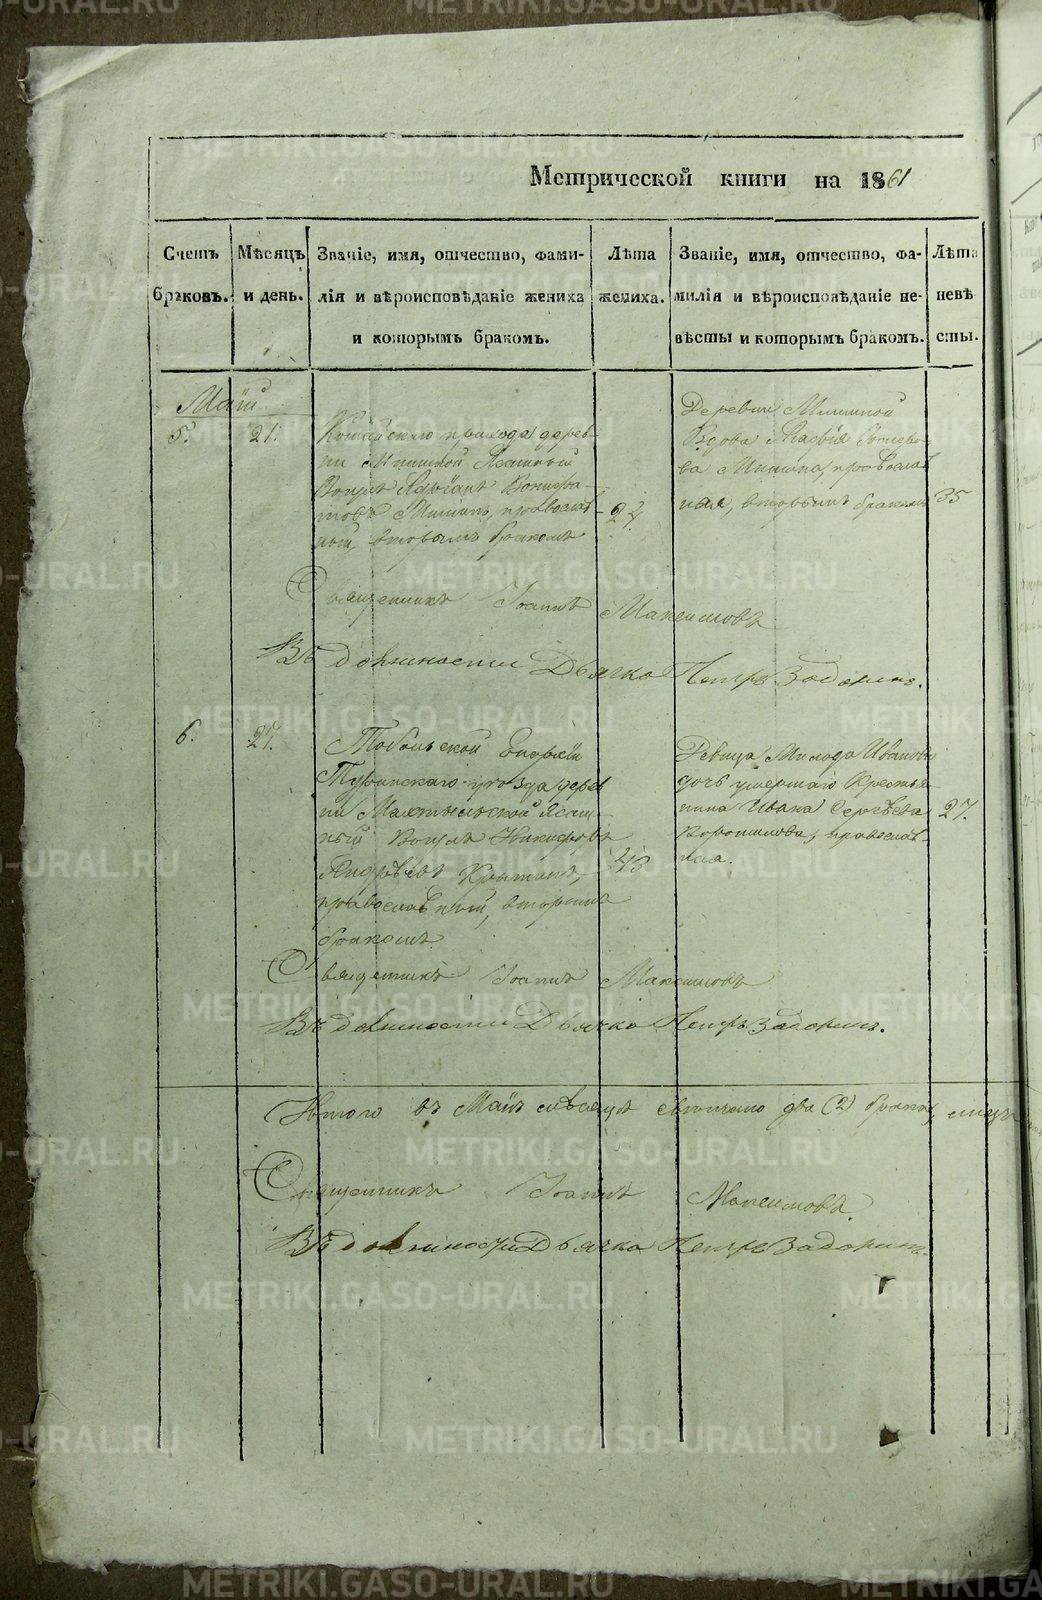 Метрической книги на 1861
Счетъ браковъ.
Мѣсяцъ и день.
Званіе, имя, отчество, фами-
лія и вѣроисповѣданіе жениха
и которымъ бракомъ.
Лѣта жениха.
Званіе, имя, отчество, фа-
милія и вѣроисповѣданіе не-
вѣсты и которымъ бракомъ.
Лѣта невѣ
сты.
Маій
5.
21.
прихода дерев-
ни
православ
ный, вторымъ бракомъ
24
Деревни
Вдова
православ
ная, вторымъ бракомъ
35
Священникъ Іоаннъ Максимовъ
Въ должности Дьячка Петръ Задоринъ.
6.
27.
Тобольской Епархіи
Туринскаго уѣзда дерев
ни Ясаш-
ный Вогулъ Никифоръ
Андрѣевъ
православный, вторымъ
бракомъ
43
Девица Иванова
дочь умершаго Крестья
нина Ивана Сергѣева
Ворошилова, православ-
ная.
27.
Священникъ Іоаннъ Максимовъ
Въ должности Дьячка Петръ Задоринъ.
Итого въ Маіѣ мѣсяцѣ два (2) брака
Священникъ Іоаннъ Максимовъ
Въ должности Дьячка Петръ Задоринъ
METRIKI.GASO-URAL.RU